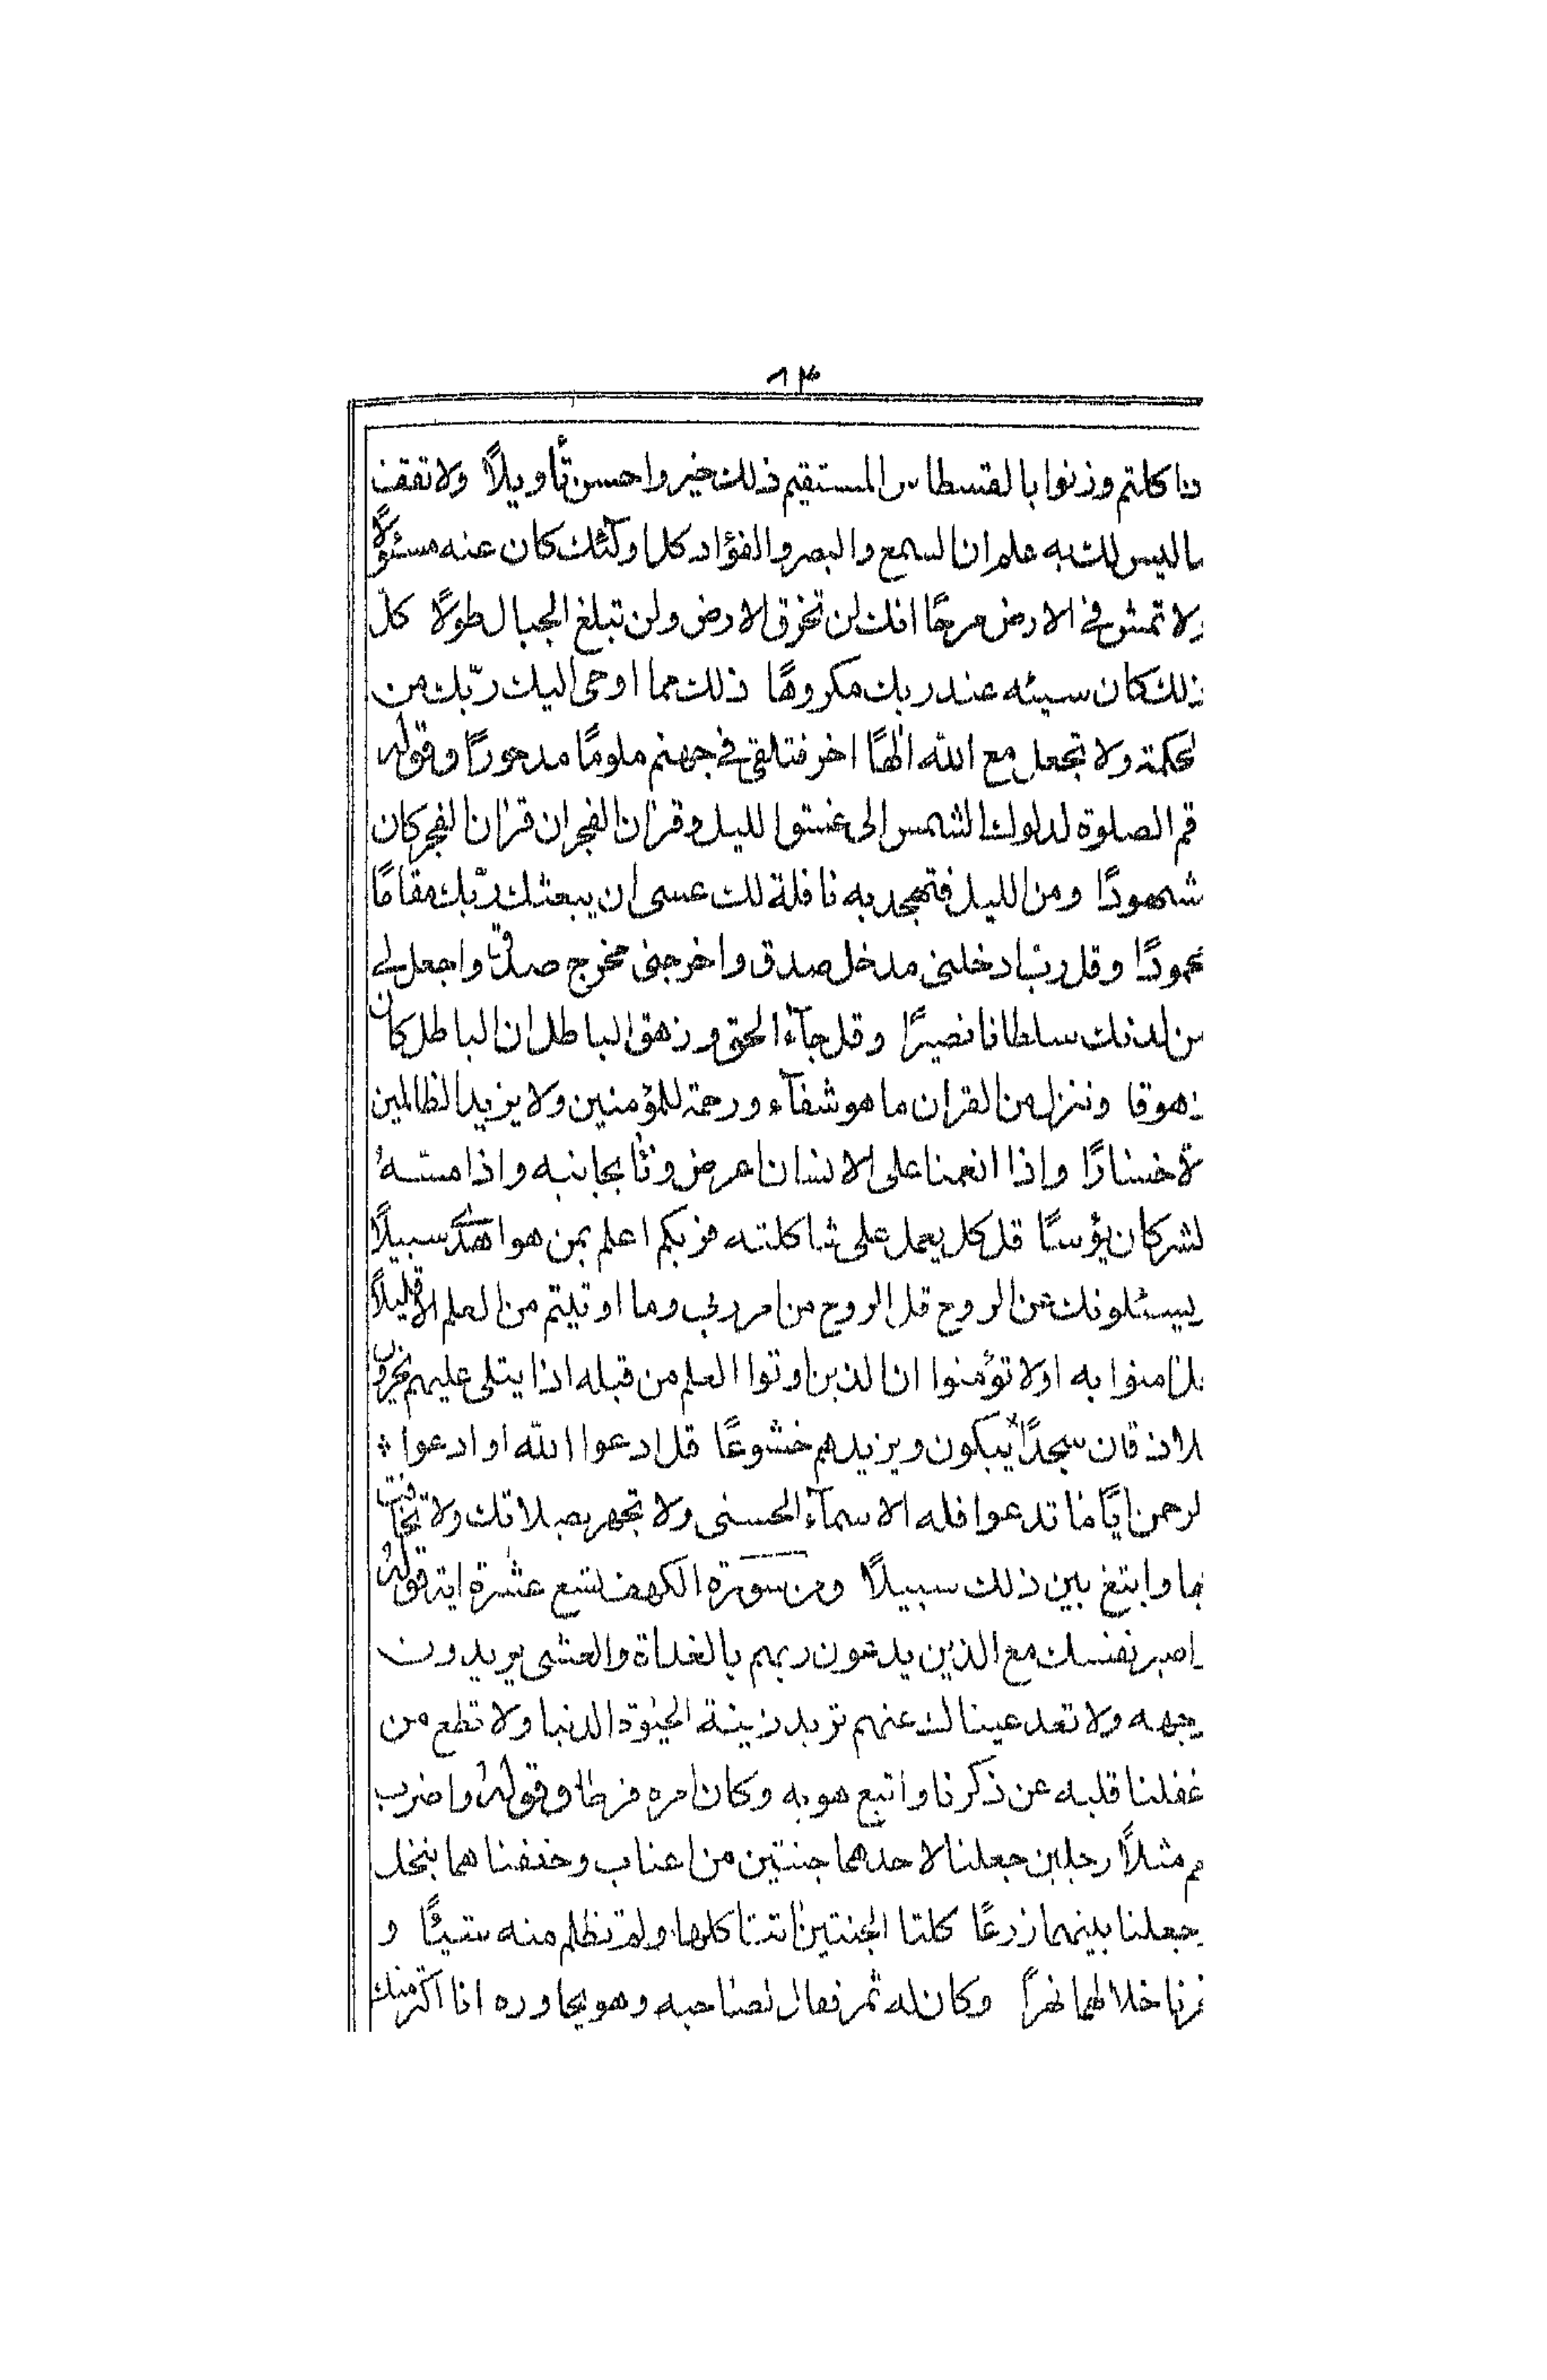 ١٣
ذا كلتم وزنوا بالقسطاس المستقيم ذلك خير واحسن تأويلاً ولا تقف
ما ليس لك به علم ان السمع والبصر والفؤاد كل اولٓئك كان عنه مسئولاً
ولا تمش في الارض مرحًا انك لن تخرق الارض ولن تبلغ الجبال طولاً كلّ
ذلك كان سيئه عند ربك مكروهًا ذلك مما اوحى اليك ربّك من
لحكمة ولا تجعل مع الله الٰهًا اخر فتلقى في جهنم ملومًا مدحورًا وقوله
قم الصلوة لدلوك الشمس الى غسق الليل وقران الفجر ان قران الفجر كان
شهودًا ومن الليل فتهجد به نافلة لك عسى ان يبعثك ربّك مقامًا
محمودًا وقل رب ادخلنى مدخل صدق واخرجنى مخرج صدق واجعل لي
من لدنك سلطانا نصيرًا وقل جآء الحق وزهق الباطل ان الباطل كان
زهوقا وننزل من القران ما هو شفآء ورحمة للمؤمنين ولا يزيد الظالمين
لاّ خسارًا واذا انعمنا على الانسان اعرض ونأ بجانبه واذا مسّهُ
لشر كان يؤسًا قل كل يعمل على شاكلته فربكم اعلم بمن هو اهدى سبيلاً
ويسئلونك عن الروح قل الروح من امر ربي وما اوتيتم من العلم الا قليلاً
قل امنوا به اولا تؤمنوا ان الذين اوتوا العلم من قبله اذا يتلى عليهم يخرون
للاذقان سجدًا يبكون ويزيدهم خشوعًا قل ادعوا الله او ادعوا
لرحمن ايّاما تدعوا فله الاسمآء الحسنى ولا تجهر بصلاتك ولا تخافت
بها وابتغ بين ذلك سبيلاً ومن سورة الكهف تسع عشرة اية قوله
واصبر نفسك مع الذين يدعون ربهم بالغداة والعشى يريدون
وجهه ولا تعد عيناك عنهم تريد زينة الحيوة الدنيا ولا تطع من
غفلنا قلبه عن ذكرنا واتبع هويه وكان امره فرطا وقولهُ واضرب
هم مثلاً رجلين جعلنا لاحدهما جنتين من اعناب وحففناهما بنخل
وجعلنا بينهما زرعًا كلتا الجنتين اتت اكلها ولم تظلم منه شيئًا و
فجرنا خلالهما نهرًا وكان له ثمر فقال لصاحبه وهو يحاوره انا اكثر منك